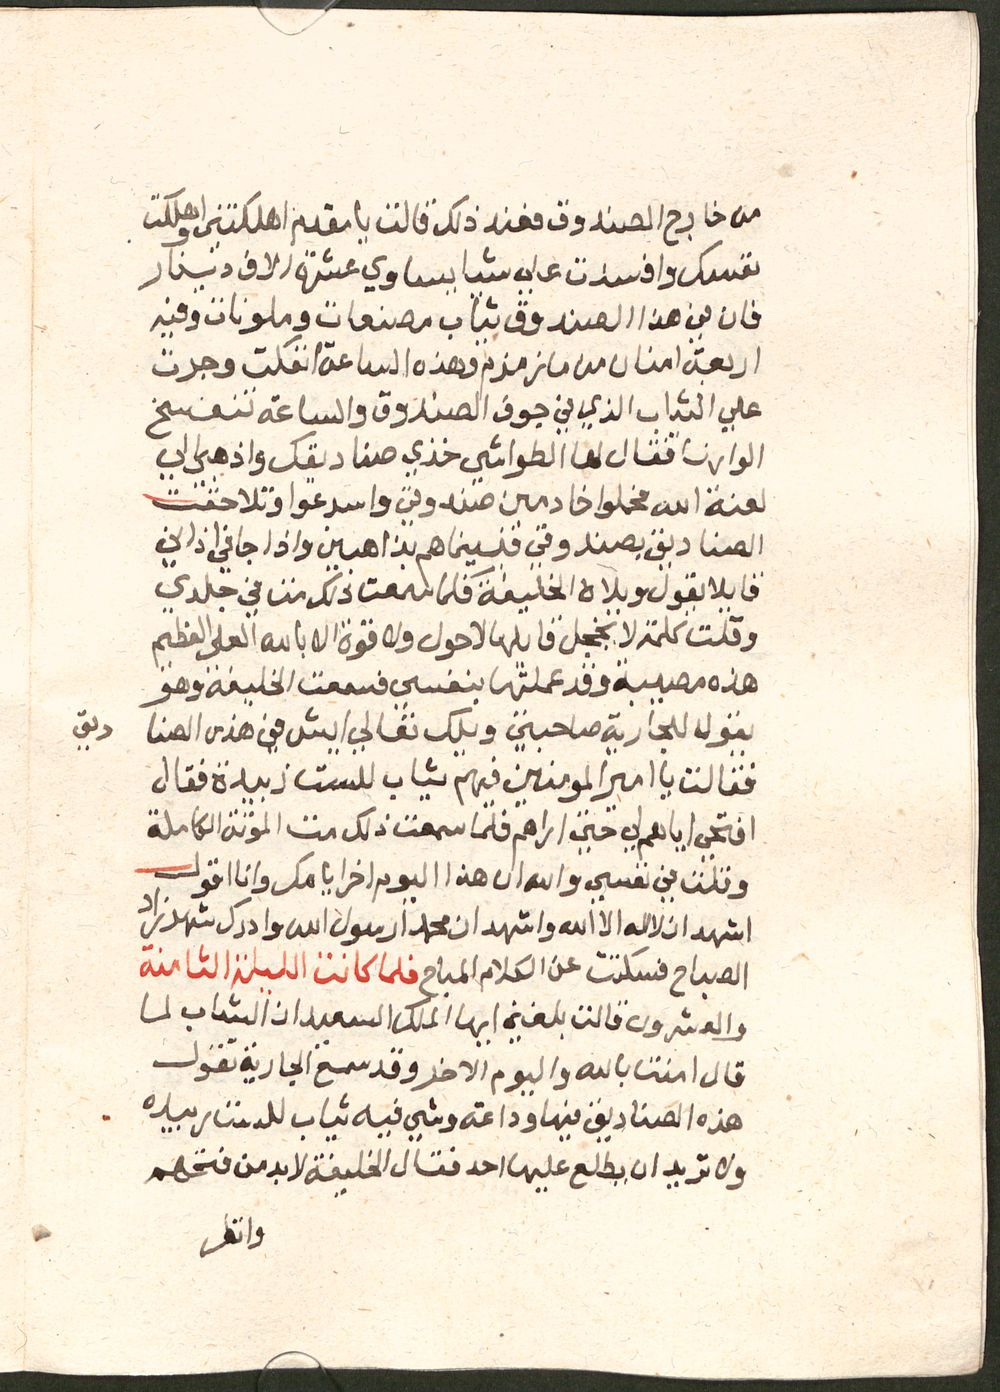 من خارج الصندوق فعند ذلك قالت يا مقدم اهلكتني واهلكت
نفسك وافسدت علي شيا يساوي عشرة الاف دينار
فان في هذا الصندوق ثياب مصبغات وملونات وفيه
اربعة امنان من ماء زمزم وهذه الساعة انفكت وجرت
علي الثياب الذي في جوف الصندوق والساعة تنفسخ
الوانها فقال لها الطواشي خذي صناديقك واذهبي الي
لعنة الله فحملوا خادمين صندوقي واسرعوا وتلاحقت
الصناديق بصندوقي فبينما هم بذاهبين واذا جاني اذاني
قايلا يقول ويلاه الخليفة فلما سمعت ذلك مت في جلدي
وقلت كلمة لا يخجل قايلها لا حول ولا قوة الا بالله العلي العظيم
هذه مصيبة وقد عملتها بنفسي فسمعت الخليفة وهو
يقول للجارية صاحبتي ويلك تعالي ايش في هذه الصنا
ديق
فقالت يا امير المومنين فيهم ثياب للست زبيدة فقال
افتحي اياهم لي حتي اراهم فلما سمعت ذلك مت الموتة الكاملة
وقلت في نفسي والله ان هذا اليوم اخر ايامك وانا اقول
اشهد ان لا اله الا الله واشهد ان محمدا رسول الله وادرك شهرزاد
الصباح فسكتت عن الكلام المباح فلما كانت الليلة الثامنة
والعشرون قالت بلغني ايها الملك السعيد ان الشاب لما
قال امنت بالله واليوم الاخر وقد سمع الجارية تقول
هذه الصناديق فيها وداعة وشي فيه ثياب للست زبيده
ولا تريد ان يطلع عليها احد فقال الخليفة لا بد من فتحهم
وانظر